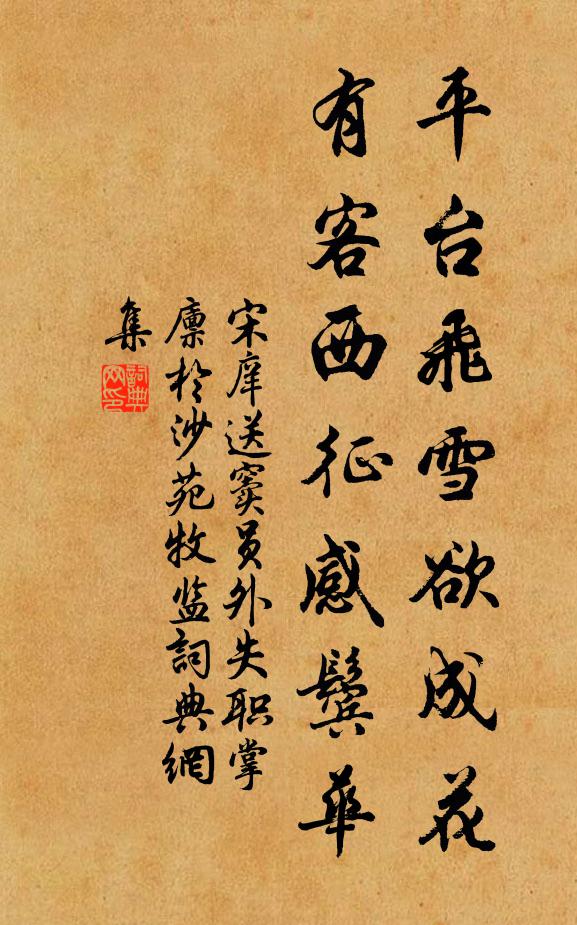 平台飛雪欲成花
有客西征感鬢華
宋庠送窦員外失职掌
廩於沙苑牧监詞典網
集
詞典網印